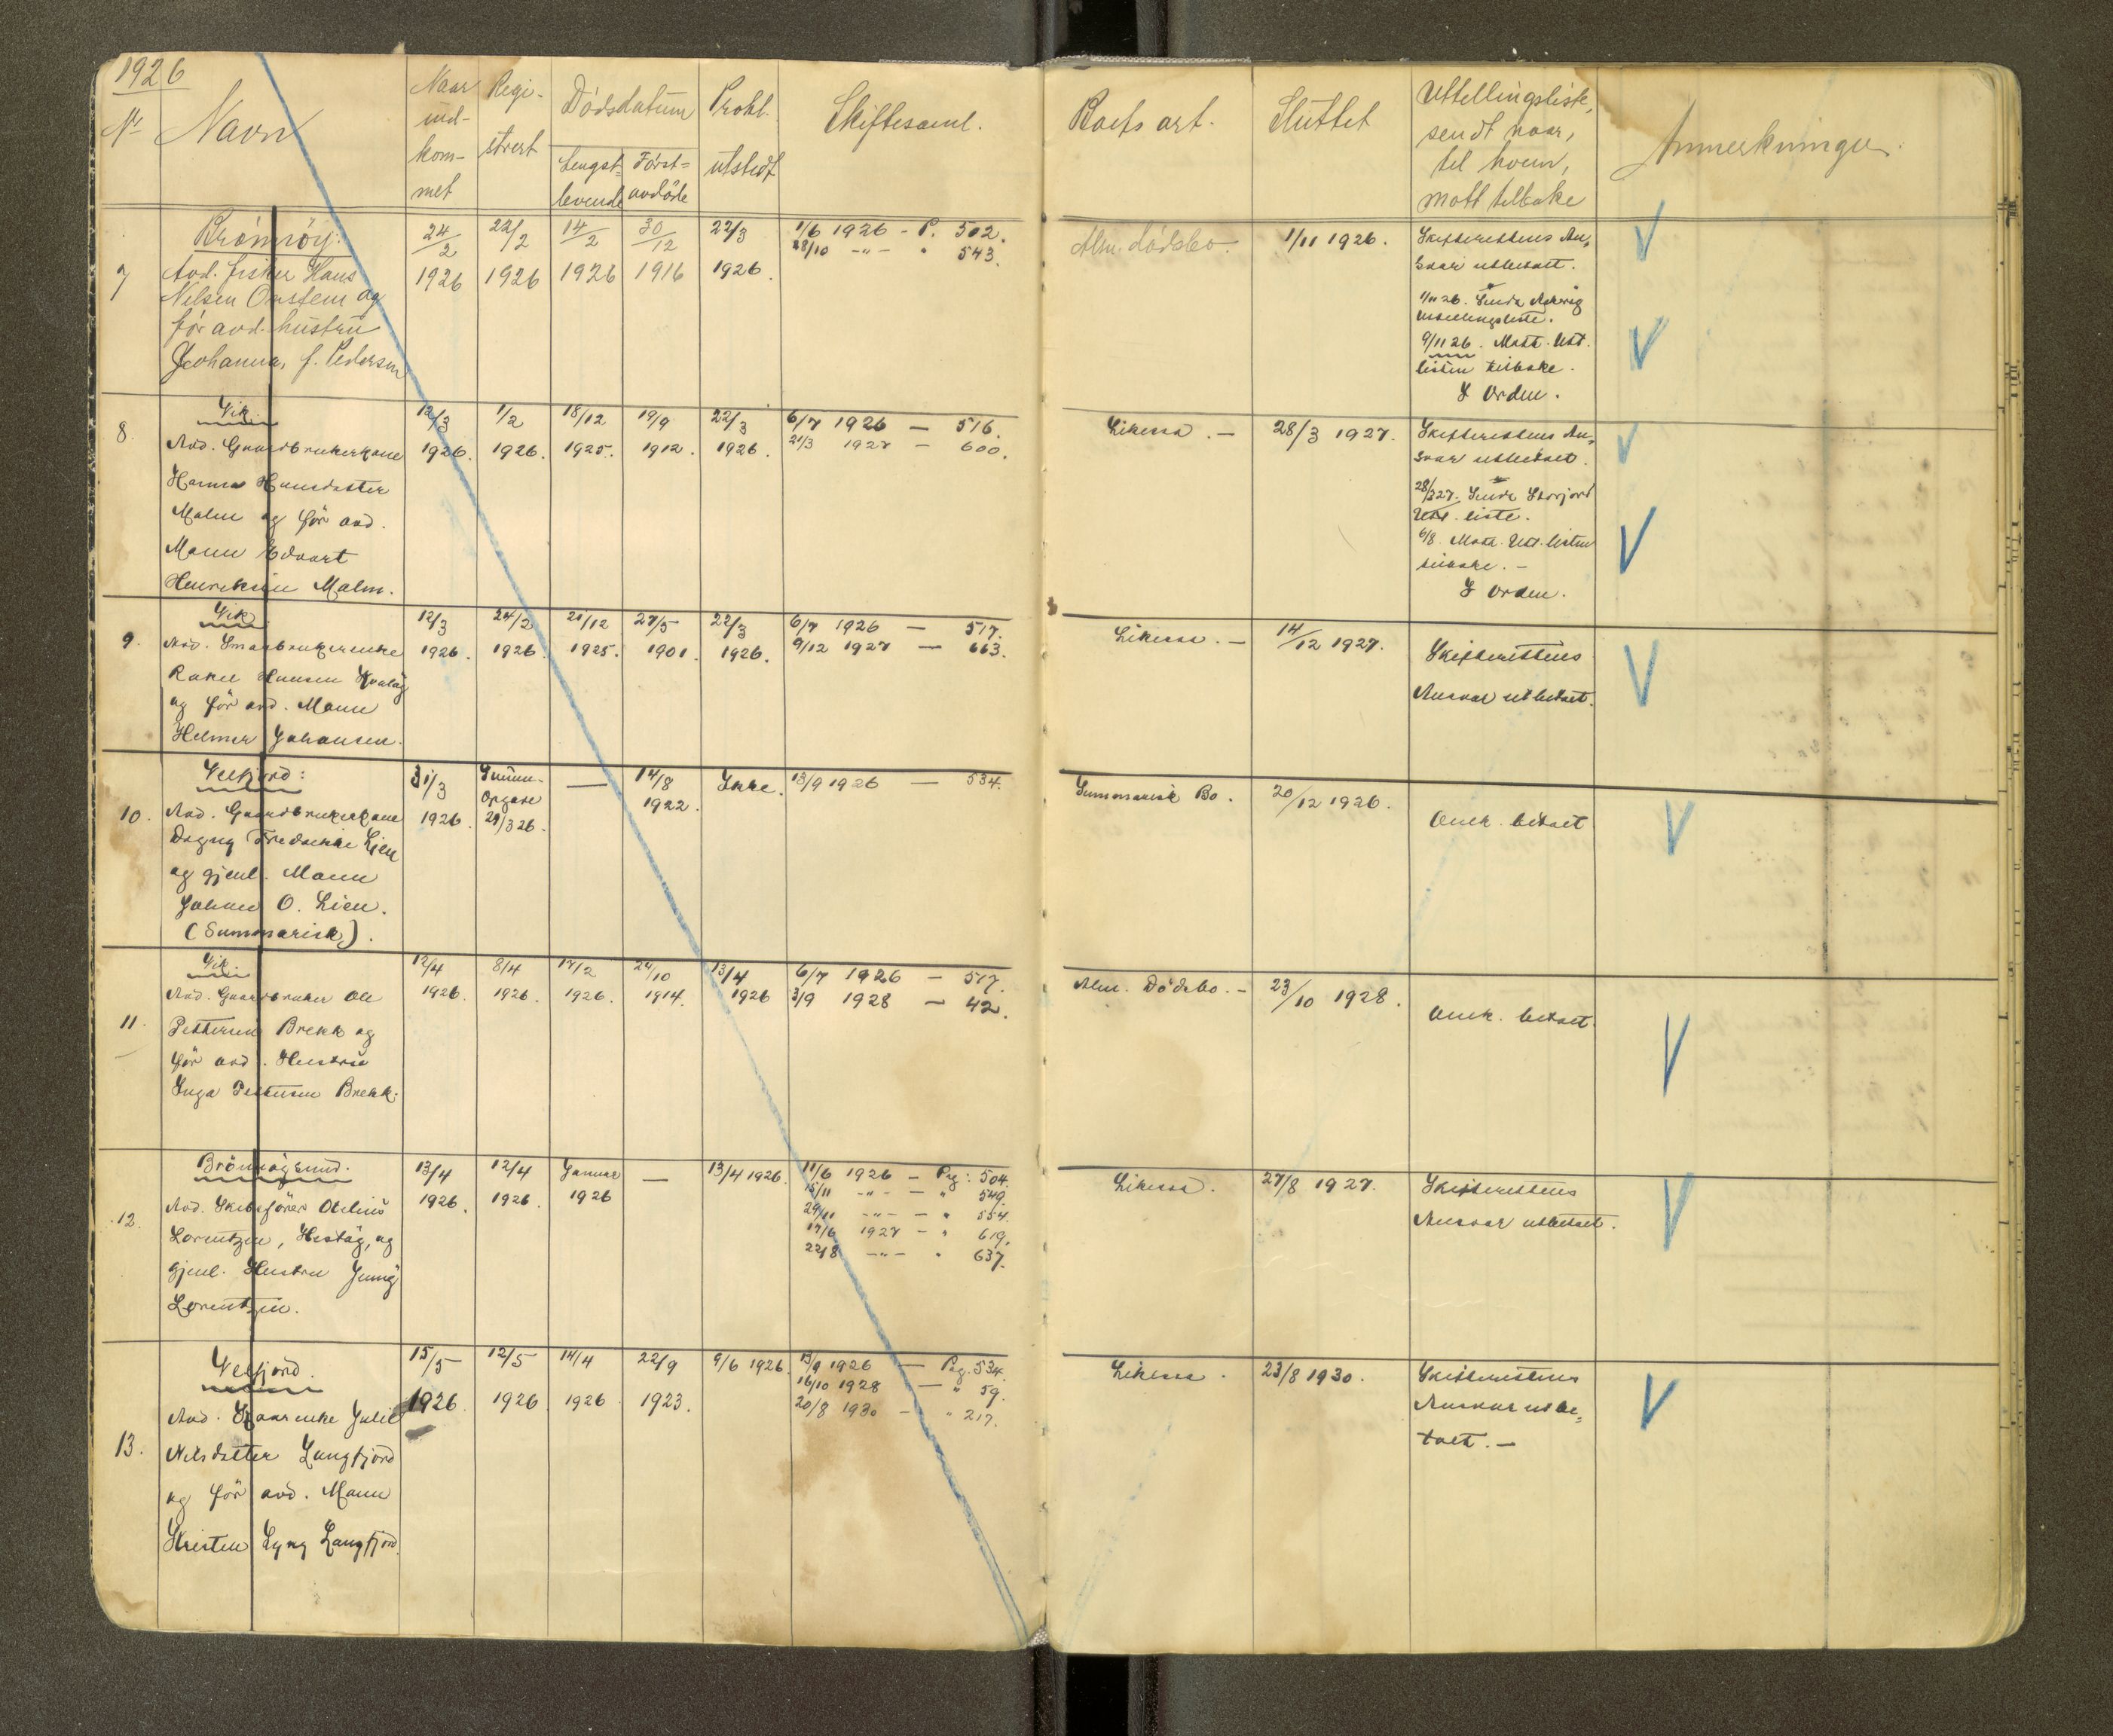 1926
Nr Navn Naar ind-kom-met Regi-strert Dödsdatum Lengst-levende Först-avdöde Prokl. utstedt Skiftesaml. Boets art. Sluttet Uttellingsliste, sendt naar, til hvem, mott tilbake Anmerkninger.
Brönnöy:
7 Avd. fisker Hans
Nilsen Onstein og
för avd. hustru
Johanna, f. Pedersen
24/2 1926 22/2 1926 14/2 1926 30/12 1916 22/3 1926.
1/6 1926 - P. 502.
28/10 -"- " 543.
Alm. dödsbo. 1/11 1926.
Skifterettens An-
svar utbetalt.
1/11 26. Sendt
Uttellingsliste.
9/11 26. Mott. Utt.
listen tilbake.
I Orden.
Vik.
8. Avd. Gaardbrukerkone
Hanna Hansdatter
Malm og för avd.
Mann Edvart
Henriksen Malm.
12/3 1926. 1/2 1926. 18/12 1925. 19/9 1912. 22/3 1926.
6/7 1926 — 516.
21/3 1927 — 600.
Likessa. — 28/3 1927.
Skifterettens An-
svar utbetalt.
28/3 27. Sendt Storjord
Utt. liste.
6/8. Mott. Utt. listen
tilbake. —
I Orden.
Vik
9. Avd. Smaabrukerenke
Rakel Hansen Kvaløy
og för avd. Mann
Helmer Johansen.
12/3 1926. 24/2 1926. 21/12 1925. 27/5 1901. 22/3 1926.
6/7 1926 — 517.
9/12 1927 — 663.
Likessa. — 14/12 1927.
Skifterettens
Ansvar utbetalt.
Velfjord:
10. Avd. Gaardbrukerkone
Dagny Fredrikke Lien
og gjenl. Mann
Johan O. Lien.
(Summarisk).
31/3 1926. Summ. Opgave 29/3 26. — 14/8 1922. Ikke.
13/9 1926 — 534.
Summarisk Bo. 20/12 1926.
Omk. betalt
Vik.
11. Avd. Gaardbruker Ole
Pettersen Brekk og
för avd. Hustru
Inga Pettersen Brekk.
12/4 1926. 8/4 1926. 17/2 1926. 24/10 1914. 13/4 1926
6/7 1926 — 517.
3/9 1928 — 42.
Alm. Dödsbo. — 23/10 1928.
Omk. betalt.
Brönnöysund.
12. Avd. Skibsförer Otelius
Lorentzen, Hestöy, og
gjenl. Hustru Jenny
Lorentzen.
13/4 1926. 12/4 1926. Januar 1926 — 13/4 1926.
11/6 1926 — Pag: 504.
15/11 -"- — " 549.
29/11 -"- — " 554.
17/6 1927 — " 619.
22/8 -"- " 637.
Likessa. 27/8 1927.
Skifterettens
Ansvar utbetalt.
Velfjord.
13. Avd. Kaarenke Julie
Nilsdatter Langfjord
og för avd. Mann
Kristen Lyng Langfjord.
15/5 1926 12/5 1926 14/4 1926. 22/9 1923. 9/6 1926.
13/9 1926 — Pag. 534.
16/10 1928 — " 59.
20/8 1930 — " 217.
Likessa. 23/8 1930.
Skifterettens
Ansvar utbe-
talt. —